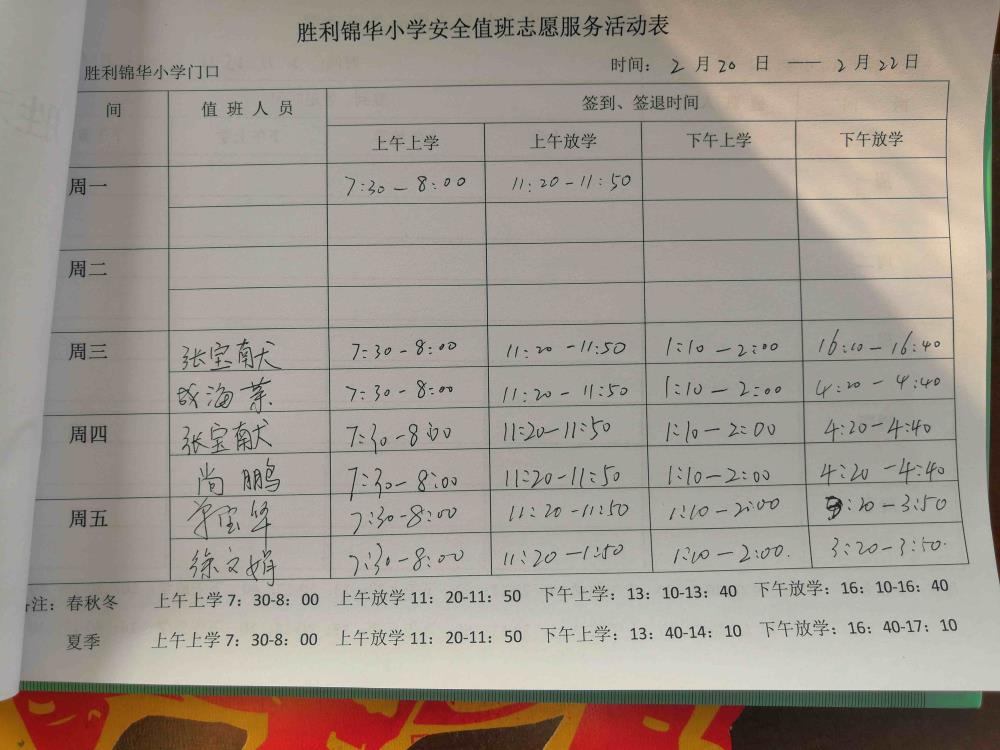 胜利锦华小学安全值班志愿服务活动表
胜利锦华小学门口 时间：2月20日——2月22日
间 值班人员 签到、签退时间
上午上学 上午放学 下午上学 下午放学
周一 7:30-8:00 11:20-11:50
周二
周三 张宝献 7:30-8:00 11:20-11:50 1:10-2:00 16:10-16:40
海 7:30-8:00 11:20-11:50 1:10-2:00 4:20-4:40
周四 张宝献 7:30-8:00 11:20-11:50 1:10-2:00 4:20-4:40
尚鹏 7:30-8:00 11:20-11:50 1:10-2:00 4:20-4:40
周五 宝华 7:30-8:00 11:20-11:50 1:10-2:00 3:20-3:50
徐文娟 7:30-8:00 11:20-1:50 1:10-2:00. 3:20-3:50.
注：春秋冬 上午上学7：30-8：00 上午放学11：20-11：50 下午上学：13：10-13：40 下午放学：16：10-16：40
夏季 上午上学7：30-8：00 上午放学11：20-11：50 下午上学：13：40-14：10 下午放学：16：40-17：10